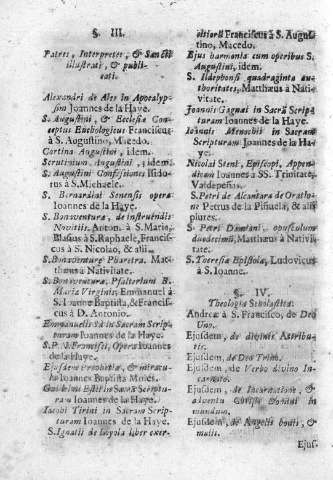 §. III.
Patres, Interpretes, & Sancti
illustrati, & publi-
cati.
Alexandri de Ales in Apocalyp-
sim Ioannes de la Haye.
S. Augustini, & Ecclesiæ Con-
ceptus Euchologicus Franciscus
à S. Augustino, Macedo.
Cortina Augustini, idem.
Scrutinium Augustini, idem.
S. Augustini Confessiones Isido-
rus à S. Michaele.
S. Bernardini Senensis opera
Ioannes de la Haye.
S. Bonaventura, de instruendis
Novitiis. Anton. à S. Maria,
Blasius à S. Raphaele, Francis-
cus à S. Nicolao, & alii.
S. Bonaventuræ Pharetra. Mat-
thæus à Nativitate.
S. Bonaventuræ, Psalterium B.
Mariæ Virginis, Emmanuel à
S. Ioanne Baptista, & Francis-
cus à D. Antonio.
Emmanuelis Sà in Sacram Scrip-
turam Ioannes de la Haye.
S. P. N. Francisci, Opera Ioannes
de la Haye.
Ejusdem Prophetiæ, & miracula
Ioannes Baptista Moles.
Guilielmi Estii in Sacra Scriptu-
ram Ioannes de la Haye.
Jacobi Tirini in Sacram Scrip-
turam Ioannes de la Haye.
S. Ignatii de Loyola liber exer-
citiorū Franciscus à S. Augus-
tino, Macedo.
Ejus harmonia cum operibus S.
Augustini, idem.
S. Ildephonsi quadraginta au-
thoritates, Matthæus à Nati-
vitate.
Joannis Gagnæi in Sacrā Scrip-
turam Ioannes de la Haye.
Joannis Menochii in Sacram
Scripturam Ioannes de la Ha-
ye.
Nicolai Stenl, Episcopi, Appen-
dicem Ioannes à SS. Trinitate,
Valdepeñas.
S. Petri de Alcantara de Oratio-
ne Petus de la Piñuela, & alii
plures.
S. Petri Damiani, opusculum
duodecimū, Matthæus à Nativi-
tate.
S. Theresiæ Epistolæ, Ludovicus
à S. Ioanne.
§. IV.
Theologia Scholastica.
Andreæ à S. Francisco, de Deo
Uno.
Ejusdem, de divinis Attribu-
tis.
Ejusdem, de Deo Trino.
Ejusdem, de Verbo divino In-
carnato.
Ejusdem, de Incarnatione, &
adventu Christi Domini in
mundum.
Ejusdem, de Angelis bonis, &
malis.
Ejus-